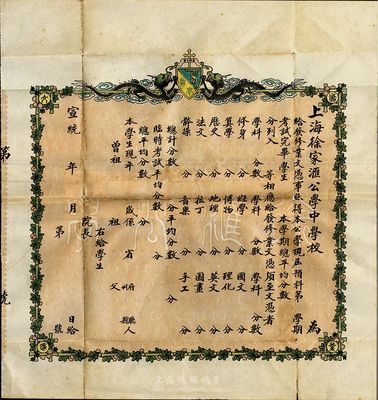 上海徐家滙公學中學校 為
給發修業文憑事照得本公學現屆預科第 學期
考試完畢學生 本學期總平均分數
分列入 等相應給發修業文憑須至文憑者
學科 分數 學科 分數 學科 分數
修身 分 經學 分 國文 分
算學 分 博物 分 理化 分
歷史 分 地理 分 英文 分
法文 分 拉丁 分 圖畫 分
體操 分 音樂 分 手工 分
總計分數 分平均分數 分
臨時考試平均分數 分
總平均分數 分
本學生現年 歲係 省 府州 廳縣人
曾祖 祖 父
右給學生
院長
宣統 年 月 日給
第 號
第
號